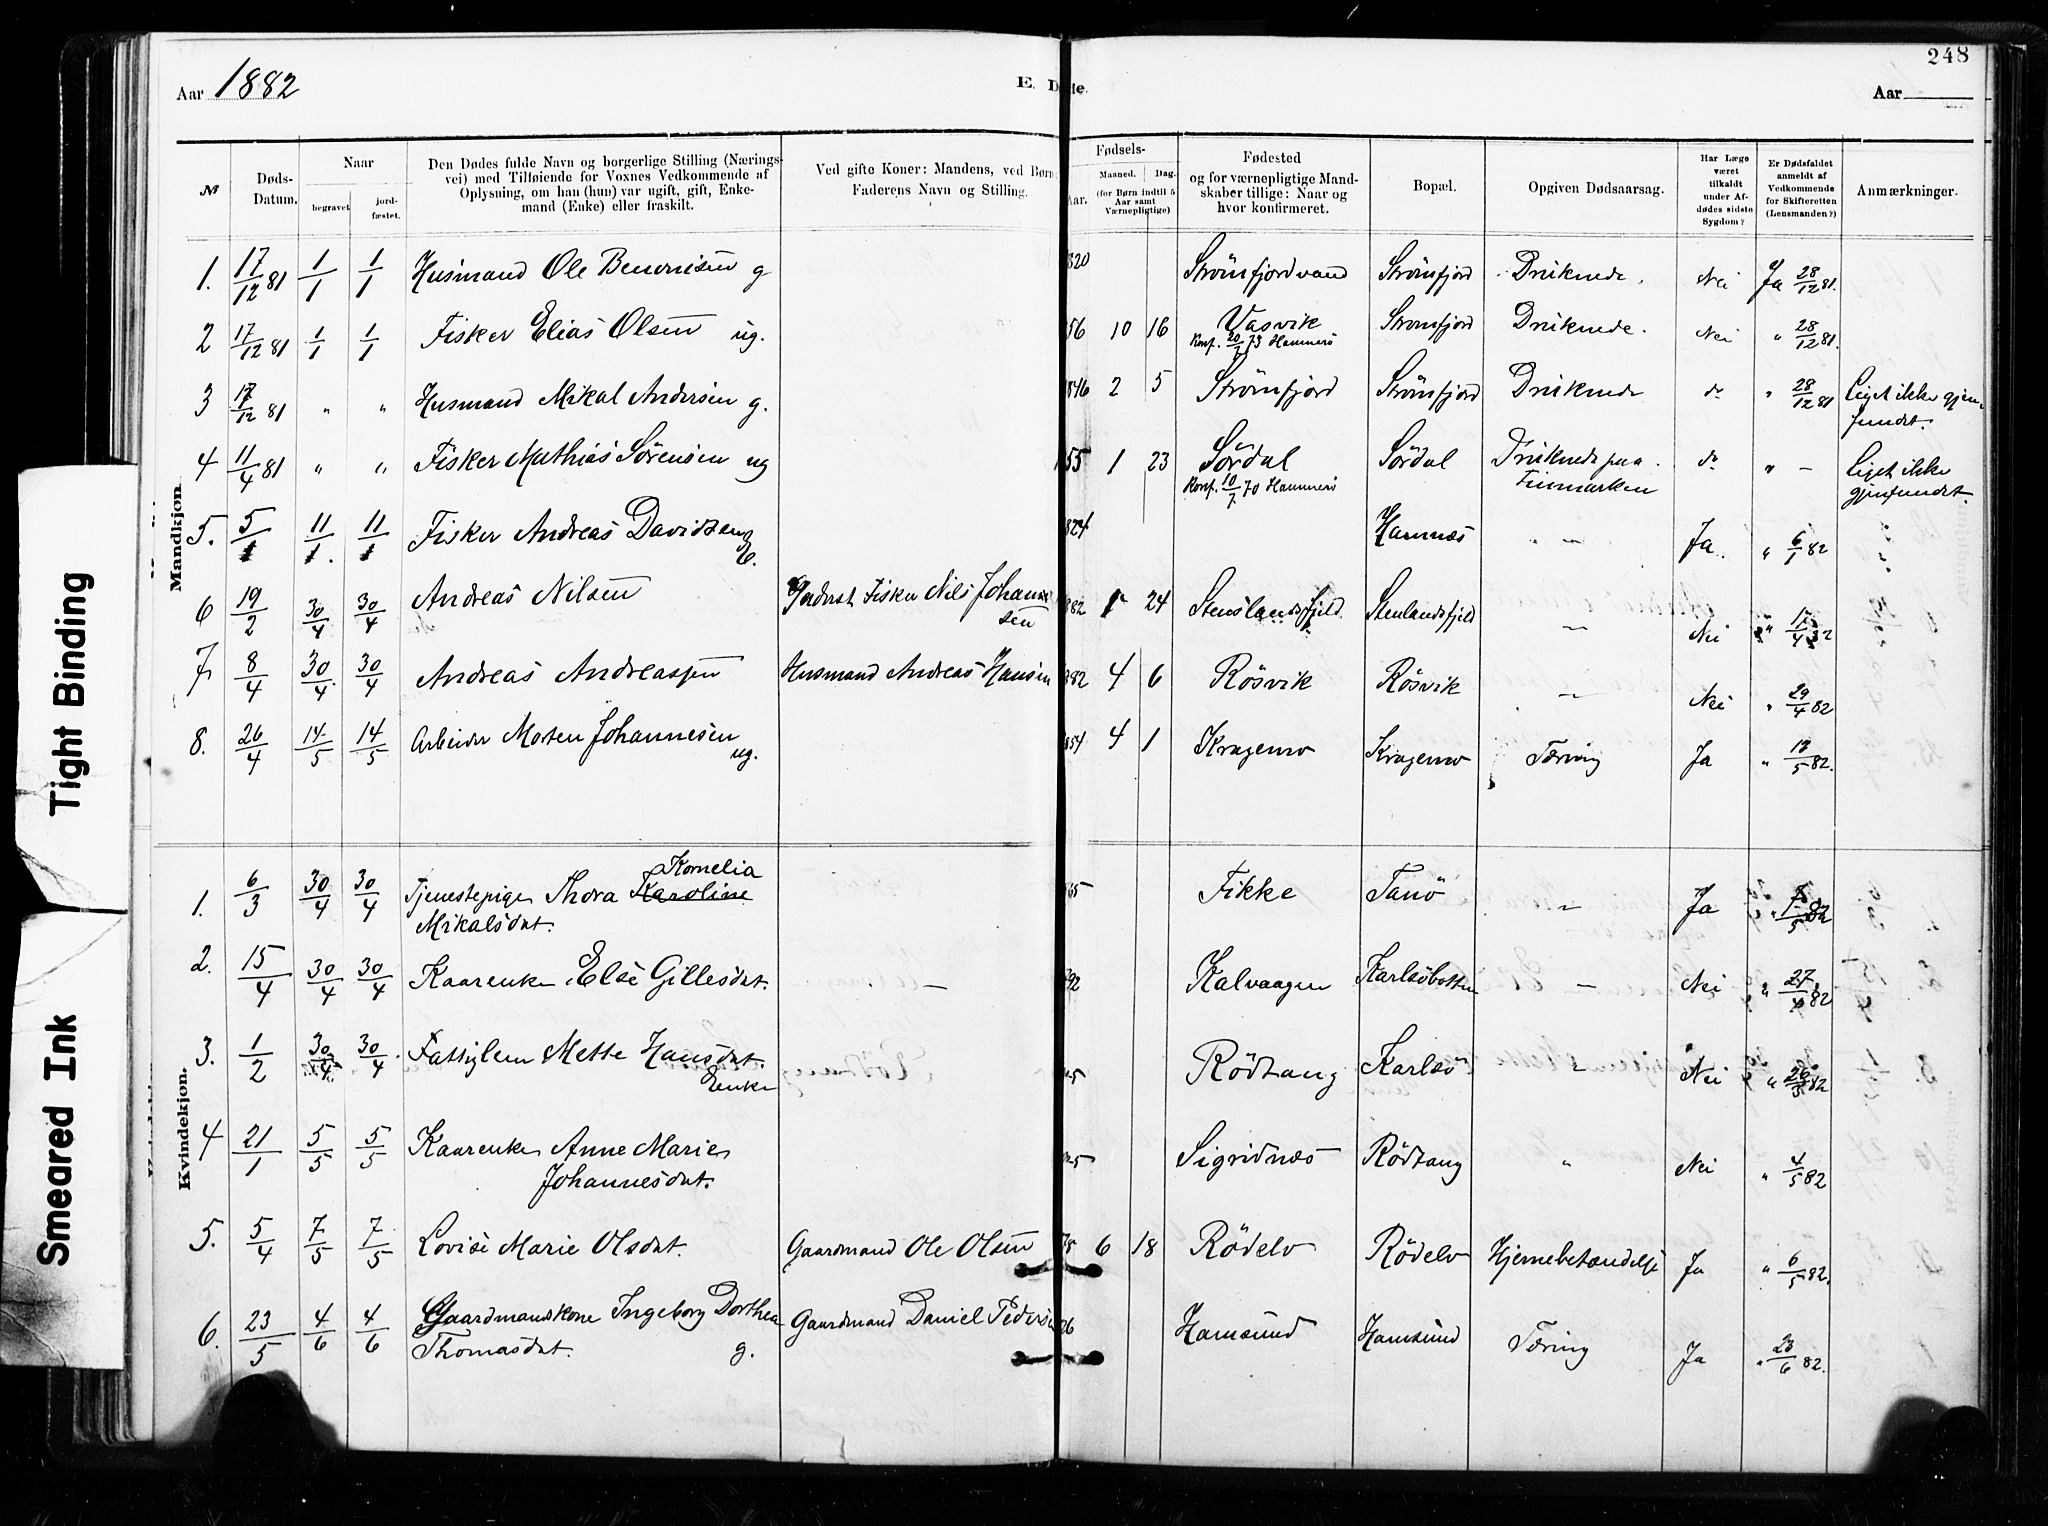 Aar 1882
E. Døde.
248
Aar
№
Døds-Datum.
Naar
begravet
jord-fæstet.
Den Dødes fulde Navn og borgerlige Stilling (Nærings-
vei) med Tilføiende for Voxnes Vedkommende af
Oplysning, om han (hun) var ugift, gift, Enke-
mand (Enke) eller fraskilt.
Ved gifte Koner: Mandens, ved Børn:
Faderens Navn og Stilling.
Fødsels-
Aar.
Maaned. Dag.
(for Børn indtil 5
Aar samt
Værnepligtige)
Fødested
og for værnepligtige Mand-
skaber tillige: Naar og
hvor konfirmeret.
Bopæl.
Opgiven Dødsaarsag.
Har Læge
været
tilkaldt
under Af-
dødes sidste
Sygdom?
Er Dødsfaldet
anmeldt af
Vedkommende
for Skifteretten
(Lensmanden?)
Anmærkninger.
Mandkjøn.
1. 17/12 81 1/1 1/1 Husmand Ole Benonisen g 820 Strömfjordvand Strömfjord Druknede. Nei Ja 28/12 81.
2 17/12 81 1/1 1/1 Fisker Elias Olsen ug. 56 10 16 Vasvik Strömfjord Druknede. Nei " 28/12 81.
Konf. 20/7 73 Hammerö
3 17/12 81 " " Husmand Mikal Andersen g. 1846 2 5 Strömfjord Strömfjord Druknede do " 28/12 81 Liget ikke gjen-
fundet.
4 11/4 81 " " Fisker Mathias Sörensen ug 55 1 23 Sördal Sördal Druknede paa do " – Liget ikke
Konf. 10/7 70 Hammerö Finmarken gjenfundet.
5. 5/1 11/1. 11/1 Fisker Andreas Davidsen 824 Hamnes " – Ja. " 6/1 82
6 19/2 30/4 30/4 Andreas Nilsen Inderst Fisker Nils Johanne
sen 882 1 24 Stenslandsfjeld Stenlandsfjeld – Nei " 17/4 82
7 8/4 30/4 30/4 Andreas Andreassen Husmand Andreas Hansen 882 4 6 Rösvik Rösvik – Nei " 29/4 82
8. 26/4 14/5 14/5 Arbeider Morten Johannesen ug. 854 4 1 Kragemo Kragemo Tæring Ja " 13/5 82.
Kvindekjøn.
1. 6/3 30/4 30/4 Tjenestepige Thora Karoline Kornelia
Mikalsdat. 65 Fikke Tanö – Ja " 1/5 82
2. 15/4 30/4 30/4 Kaarenke Else Gillesdat. – 92 Kalvaagen Karlsöbotten – Nei " 27/4 82
3. 1/2 30/4 30/4 Fattiglem Mette Hansdat.
Enke 5 Rödtang Karlsö " Nei " 26/5 82
4 21/1 5/5 5/5 Kaarenke Anne Marie
Johannesdat. 5 Sigridnæs Rödtang " Nei " 4/5 82
5. 5/4 7/5 7/5 Lovise Marie Olsdat. Gaardmand Ole Olsen 78 6 18 Rödelv Rödelv Hjernebetændelse Ja " 6/5 82.
6. 23/5 4/6 4/6 Gaardmandskone Ingeborg Dorthea
Thomasdat. g. Gaardmand Daniel Pedersen 26 Hamsund Hamsund Tæring Ja " 23/6 82.
Tight Binding
Smeared Ink